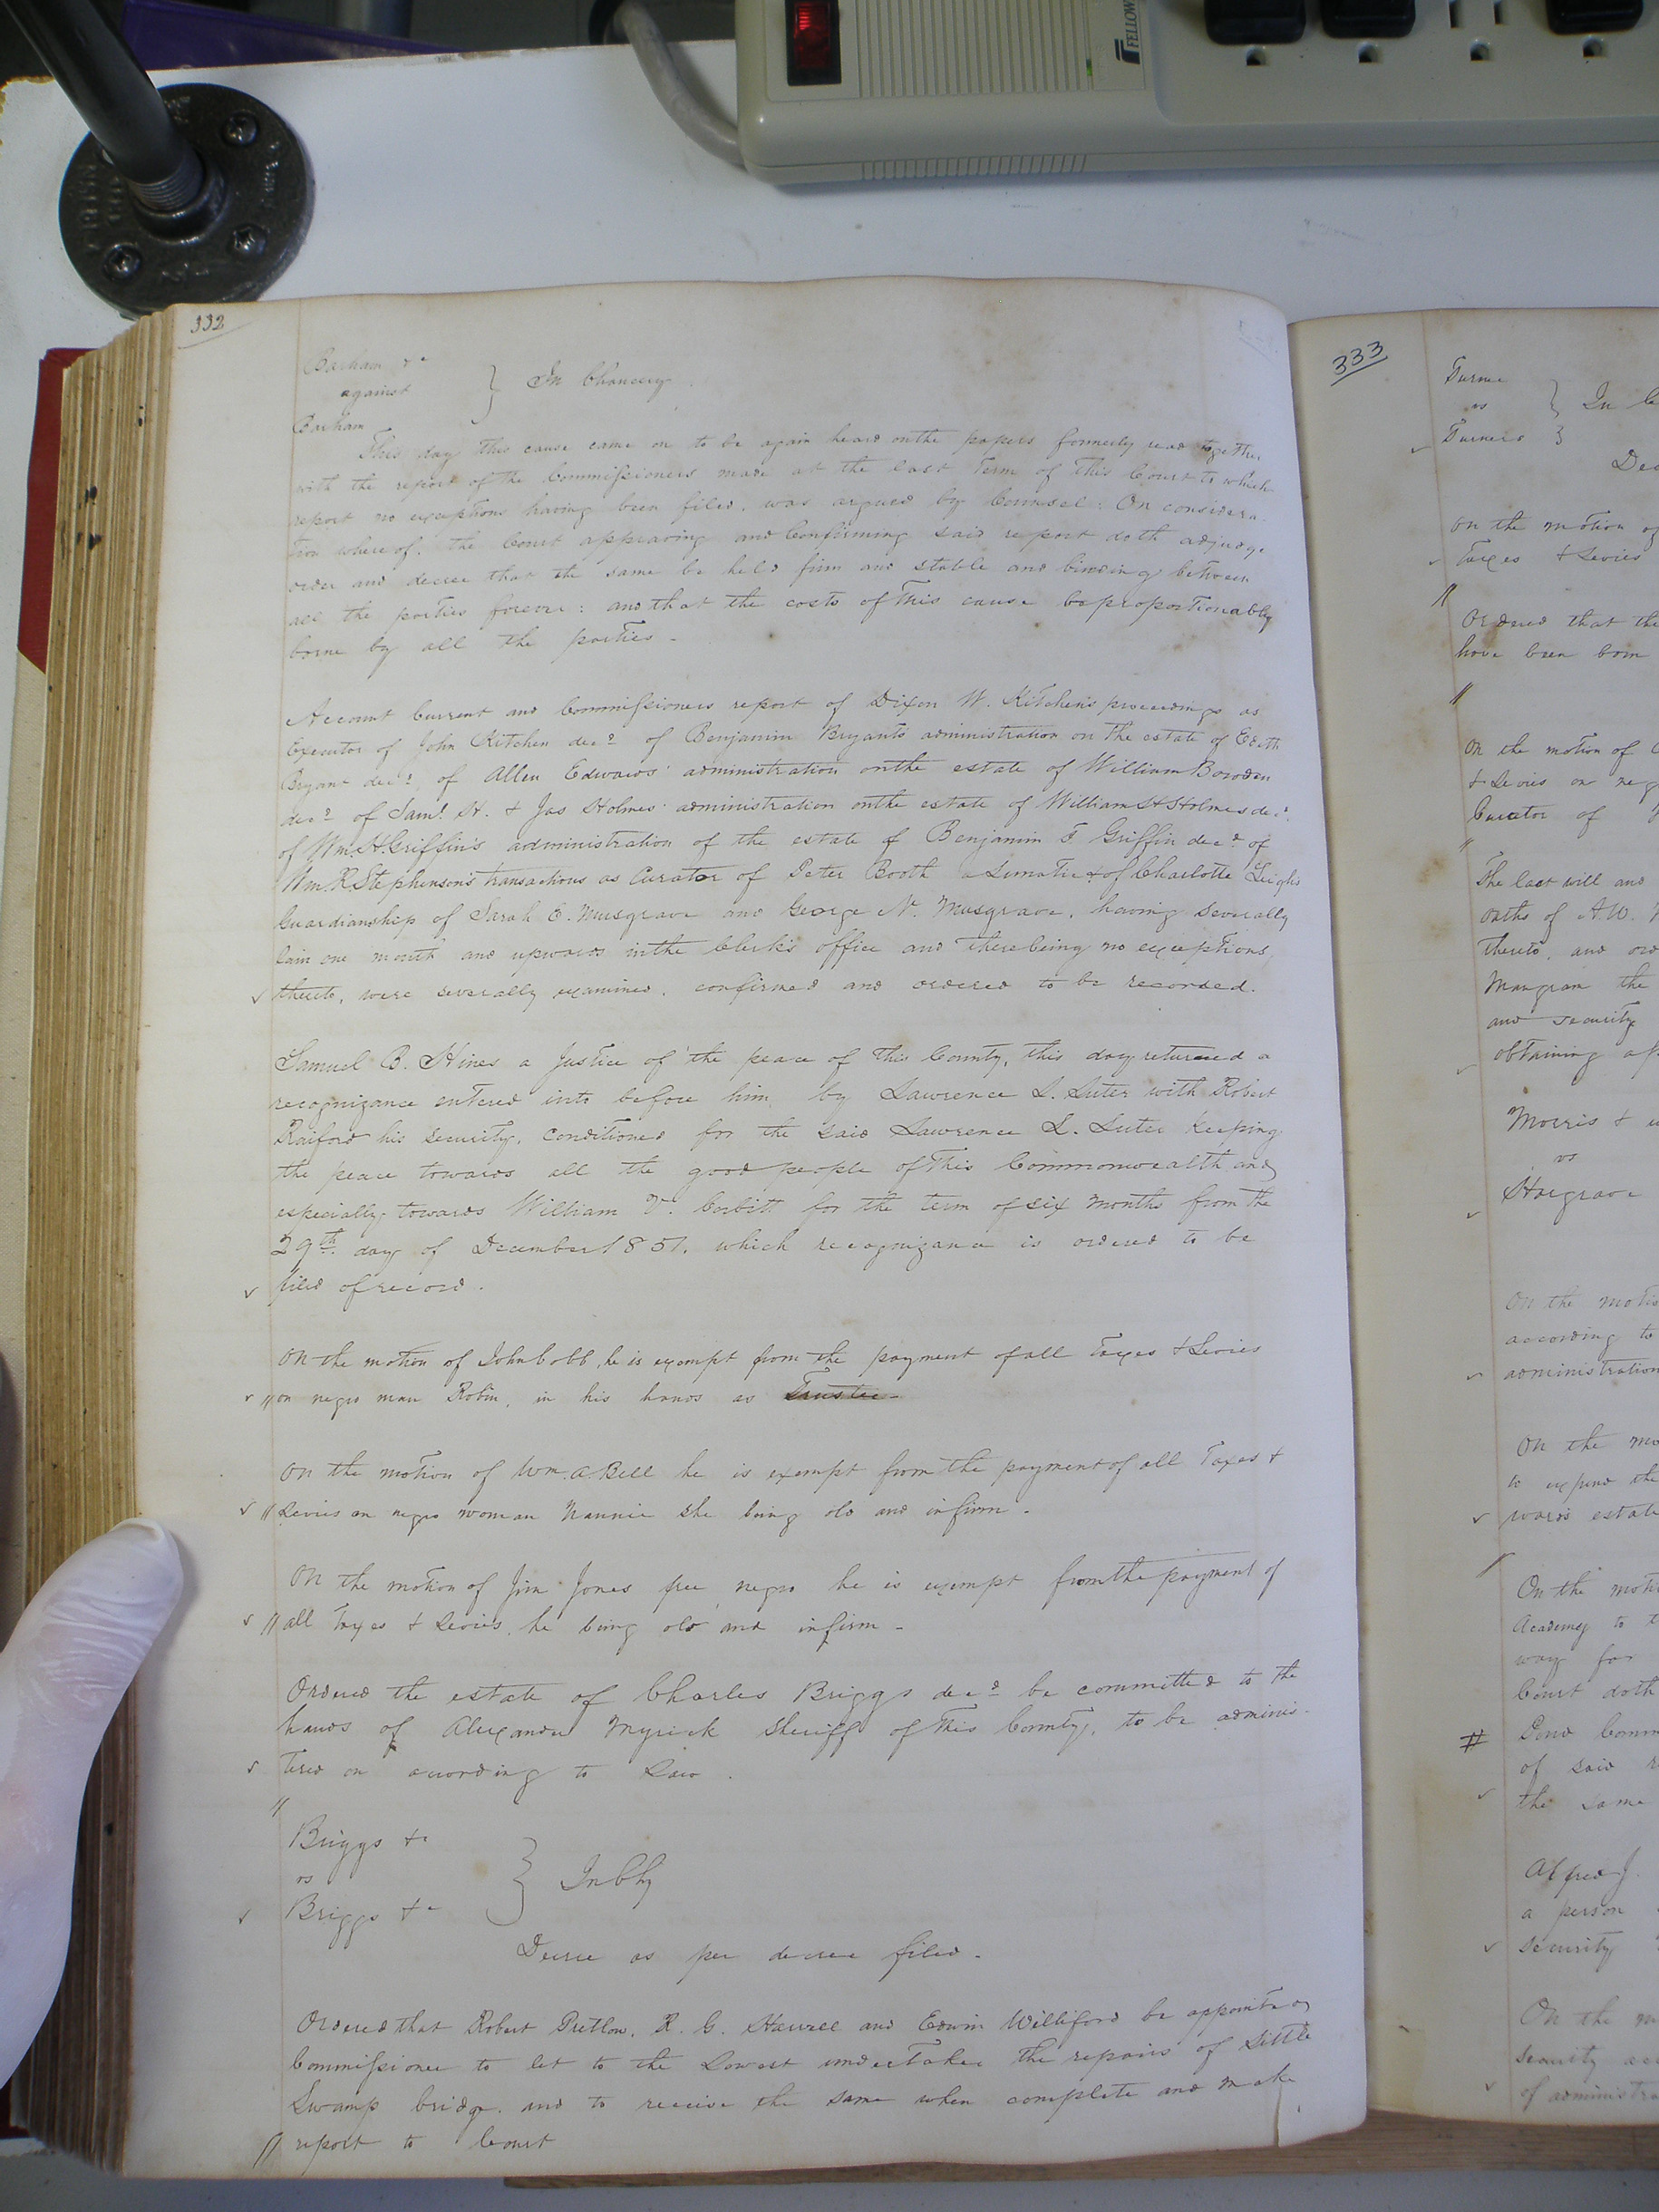 FELLOW
332
Barham &c
against
Barham
} In Chancery
This day this cause came on to be again heard on the papers formerly read together
with the report of the Commissioners made at the last Term of this Court to which
report no exceptions having been filed, was argued by Counsel: On considera-
tion whereof, the Court approving and Confirming said report doth adjudge
order and decree that the same be held firm and stable and binding between
all the parties forever: and that the costs of this cause be proportionably
borne by all the parties -
Account Current and Commissioners report of Dixon W. Kitchen's proceedings as
Executor of John Kitchen decd. of Benjamin Bryant's administration on the estate of Edith
Bryant decd. of Allen Edwards' administration on the estate of William Bowden
decd. of Saml. H. & Jas Holmes' administration on the estate of William H Holmes decd.
of Wm. H. Griffin's administration of the estate of Benjamin F Griffin decd. of
Wm R Stephenson's transactions as Curator of Peter Booth a Lunatic & of Charlotte Leigh's
Guardianship of Sarah E. Musgrave and George N. Musgrave, having severally
lain one month and upwards in the Clerk's office and there being no exceptions
thereto, were severally examined, confirmed and ordered to be recorded.
Samuel B. Hines a Justice of the peace of this County, this day returned a
recognizance entered into before him by Lawrence L. Luter with Robert
Raiford his security, conditioned for the said Lawrence L. Luter keeping
the peace towards all the good people of this Commonwealth and
especially towards William V. Corbitt for the term of six months from the
29th. day of December 1851. which recognizance is ordered to be
filed of record.
On the motion of John Cobb, he is exempt from the payment of all Taxes & Levies
on negro man Robin, in his hands as Trustee -
On the motion of Wm. A. Bell he is exempt from the payment of all Taxes &
Levies on negro woman Nannie she being old and infirm -
On the motion of Jim Jones free negro he is exempt from the payment of
all Taxes & Levies, he being old and infirm -
Ordered the estate of Charles Briggs decd. be committed to the
hands of Alexander Myrick Sheriff of this County, to be adminis-
tered on according to Law.
Briggs &c
vs
Briggs &c
} In Chy
Decree as per decree filed -
Ordered that Robert Pretlow, R. G. Harrell and Edwin Williford be appointed
Commissioner to let to the Lowest undertaker the repairs of Little
Swamp bridge, and to receive the same when complete and make
report to Court
333
Turner
vs
Turners
} In C
Dec
On the motion of
Taxes & Levies
Ordered that the
have been born
On the motion of
& Levies on neg
Curator of
The last will and
oaths of A. W.
thereto, and ord
Mangram the
and security
obtaining a p
Morris & u
vs
Hargrave
On the motio
according to
administration
On the mo
to expend the
ward's estate
On the moti
Academy to t
way for
Court doth
# Pond Comm
of said r
the same
Alfred J.
a person
security
On the m
security acc
of administra